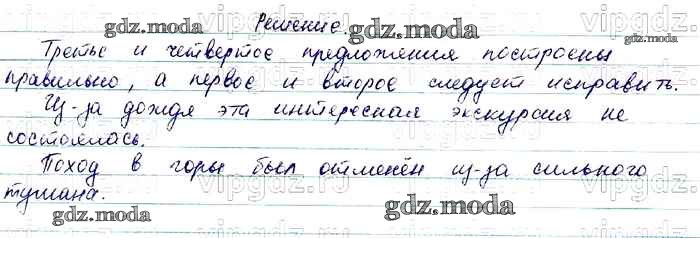 Решение.
Третье и четвертое предложения построены
правильно, а первое и второе следует исправить.
Из-за дождя эта интересная экскурсия не
состоялась.
Поход в горы был отменён из-за сильного
тумана.
gdz.moda
gdz.moda
gdz.moda
gdz.moda
gdz.moda
gdz.moda
vipgdz.ru